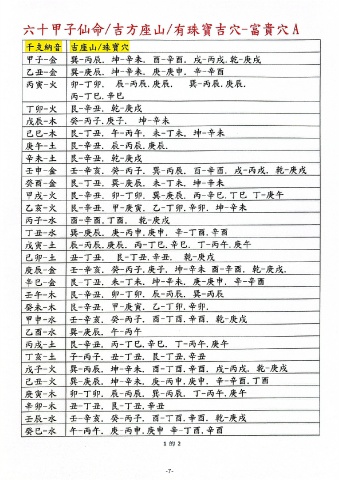 六十甲子仙命/吉方座山/有珠寶吉穴-富貴穴A
干支納音 吉座山/珠寶穴
甲子-金 巽-丙辰, 坤-辛未, 酉-辛酉, 戌-丙戌, 乾-庚戌
乙丑-金 巽-庚辰, 坤-辛未, 庚-庚申, 辛-辛酉
丙寅-火 卯-丁卯, 辰-丙辰.庚辰, 巽-丙辰.庚辰,
丙-丁巳.辛巳
丁卯-火 艮-辛丑, 乾-庚戌
戊辰-木 癸-丙子.庚子, 坤-辛未
己巳-木 艮-丁丑, 午-丙午, 未-丁未, 坤-辛未
庚午-土 艮-辛丑, 辰-丙辰.庚辰,
辛未-土 艮-辛丑, 乾-庚戌
壬申-金 壬-辛亥, 癸-丙子, 巽-丙辰, 酉-辛酉, 戌-丙戌, 乾-庚戌
癸酉-金 艮-丁丑, 巽-庚辰, 未-丁未, 坤-辛未
甲戌-火 艮-辛丑, 卯-丁卯, 巽-庚辰, 丙-辛巳.丁巳 丁-庚午
乙亥-火 艮-辛丑, 甲-庚寅, 乙-丁卯.辛卯, 坤-辛未
丙子-水 酉-辛酉.丁酉, 乾-庚戌
丁丑-水 巽-庚辰, 庚-丙申.庚申, 辛-丁酉.辛酉
戊寅-土 辰-丙辰.庚辰, 丙-丁巳.辛巳, 丁-丙午.庚午
己卯-土 丑-丁丑, 艮-丁丑.辛丑, 乾-庚戌
庚辰-金 壬-辛亥, 癸-丙子.庚子, 坤-辛未 酉-辛酉, 乾-庚戌,
辛巳-金 艮-丁丑, 未-丁未, 坤-辛未, 庚-庚申, 辛-辛酉
壬午-木 艮-辛丑, 卯-丁卯, 辰-丙辰, 巽-丙辰
癸未-木 艮-辛丑, 甲-庚寅, 乙-丁卯.辛卯,
甲申-水 壬-辛亥, 癸-丙子, 酉-丁酉.辛酉, 乾-庚戌
乙酉-水 巽-庚辰, 午-丙午
丙戌-土 艮-辛丑, 丙-丁巳.辛巳, 丁-丙午.庚午
丁亥-土 子-丙子, 丑-丁丑, 艮-丁丑.辛丑
戊子-火 巽-丙辰, 坤-辛未, 酉-丁酉.辛酉, 戌-丙戌, 乾-庚戌
己丑-火 巽-庚辰, 坤-辛未, 庚-丙申.庚申, 辛-辛酉.丁酉
庚寅-木 卯-丁卯, 辰-丙辰, 巽-丙辰, 丁-丙午.庚午
辛卯-木 丑-丁丑, 艮-丁丑.辛丑
壬辰-水 壬-辛亥, 癸-丙子, 酉-丁酉.辛酉, 乾-庚戌
癸巳-水 午-丙午, 庚-丙申.庚申 辛-丁酉.辛酉
1 的 2
-7-